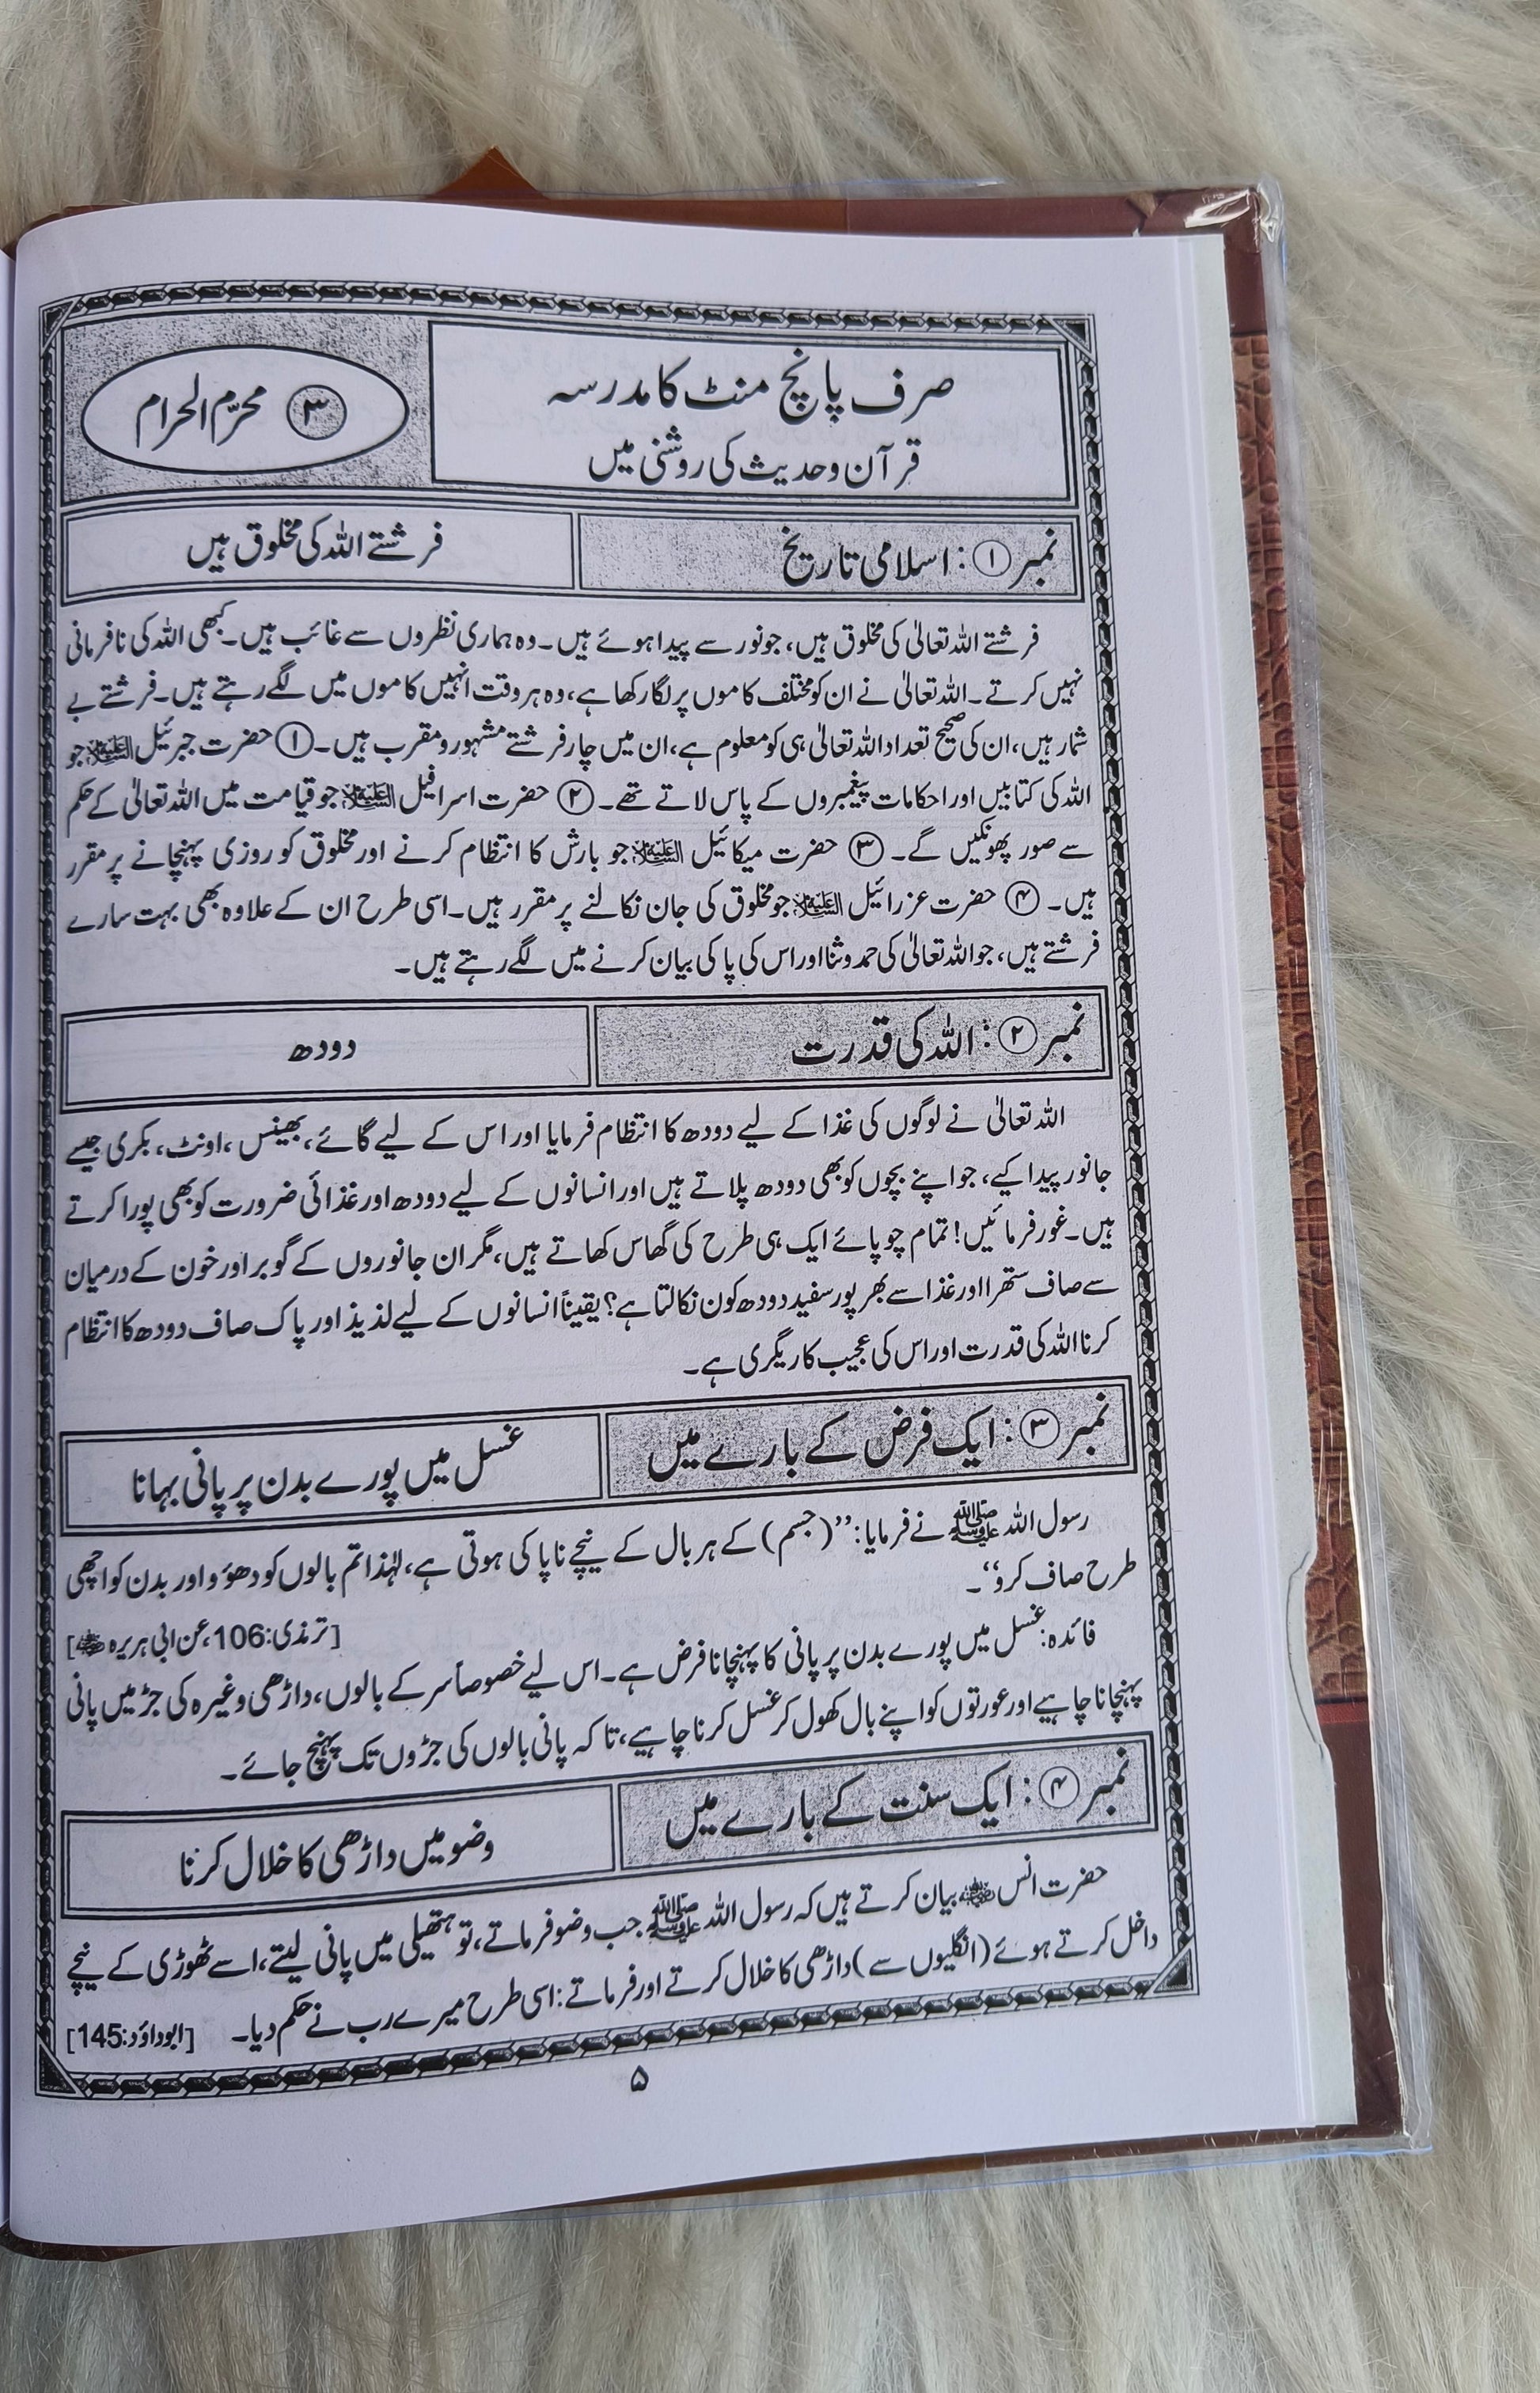 صرف پانچ منٹ کا مدرسہ
قرآن و حدیث کی روشنی میں
۳ محرّم الحرام
نمبر ۱ : اسلامی تاریخ
فرشتے اللہ کی مخلوق ہیں
فرشتے اللہ تعالیٰ کی مخلوق ہیں، جو نور سے پیدا ہوئے ہیں۔ وہ ہماری نظروں سے غائب ہیں۔ کبھی اللہ کی نافرمانی
نہیں کرتے۔ اللہ تعالیٰ نے ان کو مختلف کاموں پر لگا رکھا ہے، وہ ہر وقت انہیں کاموں میں لگے رہتے ہیں۔ فرشتے بے
شمار ہیں، ان کی صحیح تعداد اللہ تعالیٰ ہی کو معلوم ہے، ان میں چار فرشتے مشہور و مقرب ہیں۔ ۱ حضرت جبرئیل علیہ السلام جو
اللہ کی کتابیں اور احکامات پیغمبروں کے پاس لاتے تھے۔ ۲ حضرت اسرافیل علیہ السلام جو قیامت میں اللہ تعالیٰ کے حکم
سے صور پھونکیں گے۔ ۳ حضرت میکائیل علیہ السلام جو بارش کا انتظام کرنے اور مخلوق کو روزی پہنچانے پر مقرر
ہیں۔ ۴ حضرت عزرائیل علیہ السلام جو مخلوق کی جان نکالنے پر مقرر ہیں۔ اسی طرح ان کے علاوہ بھی بہت سارے
فرشتے ہیں، جو اللہ تعالیٰ کی حمد و ثنا اور اس کی پاکی بیان کرنے میں لگے رہتے ہیں۔
نمبر ۲ : اللہ کی قدرت
دودھ
اللہ تعالیٰ نے لوگوں کی غذا کے لیے دودھ کا انتظام فرمایا اور اس کے لیے گائے، بھینس، اونٹ، بکری جیسے
جانور پیدا کیے، جو اپنے بچوں کو بھی دودھ پلاتے ہیں اور انسانوں کے لیے دودھ اور غذائی ضرورت کو بھی پورا کرتے
ہیں۔ غور فرمائیں! تمام چوپائے ایک ہی طرح کی گھاس کھاتے ہیں، مگر ان جانوروں کے گوبر اور خون کے درمیان
سے صاف ستھرا اور غذا سے بھرپور سفید دودھ کون نکالتا ہے؟ یقیناً انسانوں کے لیے لذیذ اور پاک صاف دودھ کا انتظام
کرنا اللہ کی قدرت اور اس کی عجیب کاریگری ہے۔
نمبر ۳ : ایک فرض کے بارے میں
غسل میں پورے بدن پر پانی بہانا
رسول اللہ ﷺ نے فرمایا: ’’(جسم) کے ہر بال کے نیچے ناپاکی ہوتی ہے، لہٰذا تم بالوں کو دھوؤ اور بدن کو اچھی
طرح صاف کرو‘‘۔
[ترمذی: 106، عن ابی ہریرہ رضی اللہ عنہ]
فائدہ: غسل میں پورے بدن پر پانی کا پہنچانا فرض ہے۔ اس لیے خصوصاً سر کے بالوں، داڑھی وغیرہ کی جڑ میں پانی
پہنچانا چاہیے اور عورتوں کو اپنے بال کھول کر غسل کرنا چاہیے، تا کہ پانی بالوں کی جڑوں تک پہنچ جائے۔
نمبر ۴ : ایک سنت کے بارے میں
وضو میں داڑھی کا خلال کرنا
حضرت انس رضی اللہ عنہ بیان کرتے ہیں کہ رسول اللہ ﷺ جب وضو فرماتے، تو ہتھیلی میں پانی لیتے، اسے ٹھوڑی کے نیچے
داخل کرتے ہوئے (انگلیوں سے) داڑھی کا خلال کرتے اور فرماتے: اسی طرح میرے رب نے حکم دیا۔ [ابوداؤد: 145]
۵